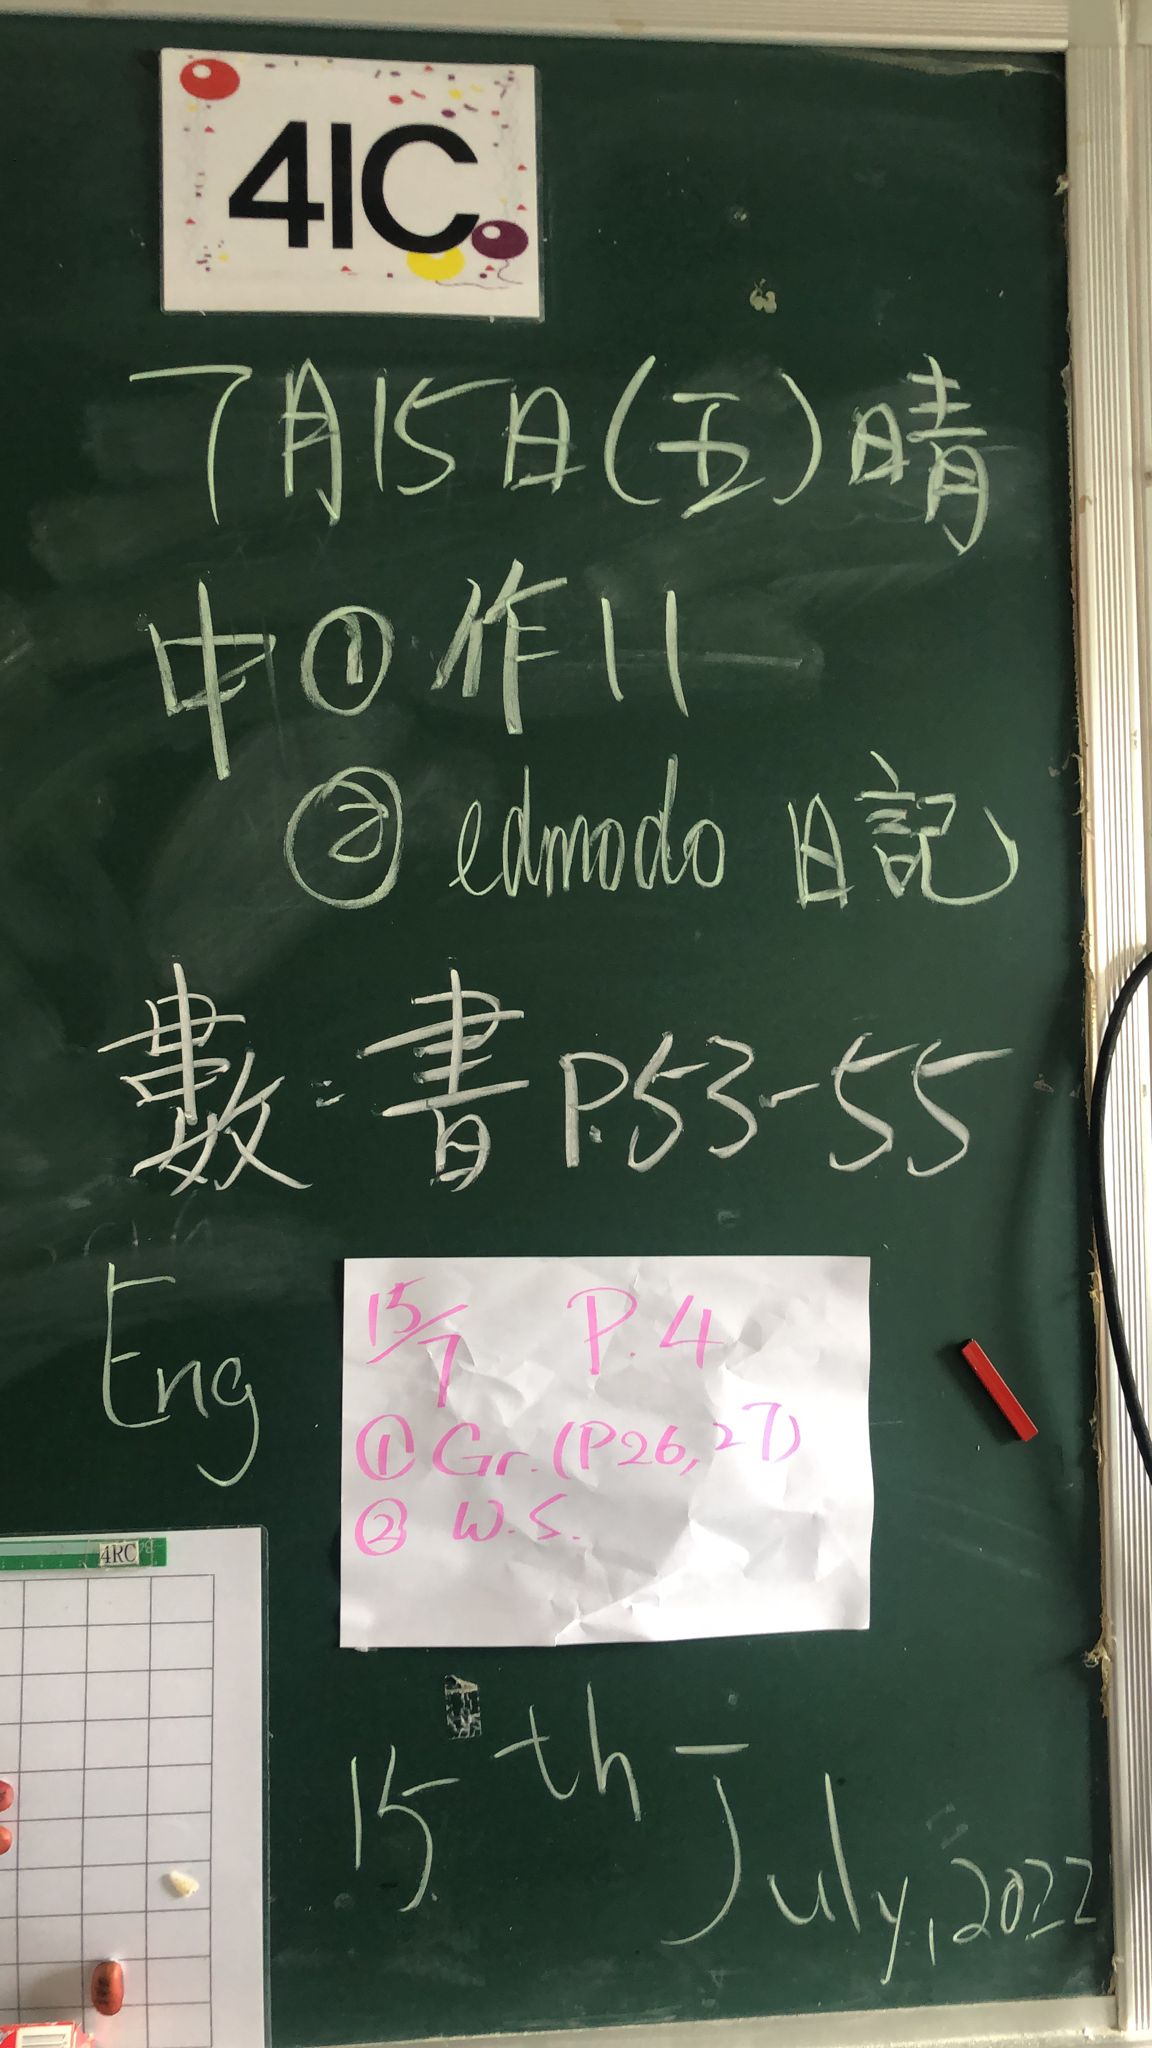 4IC
7月15日(五)晴
中①作11
②edmodo 日記
數:書P.53-55
Eng
15/7 P.4
①Gr.(P26,27)
② W.S.
4RC
15th July, 2022